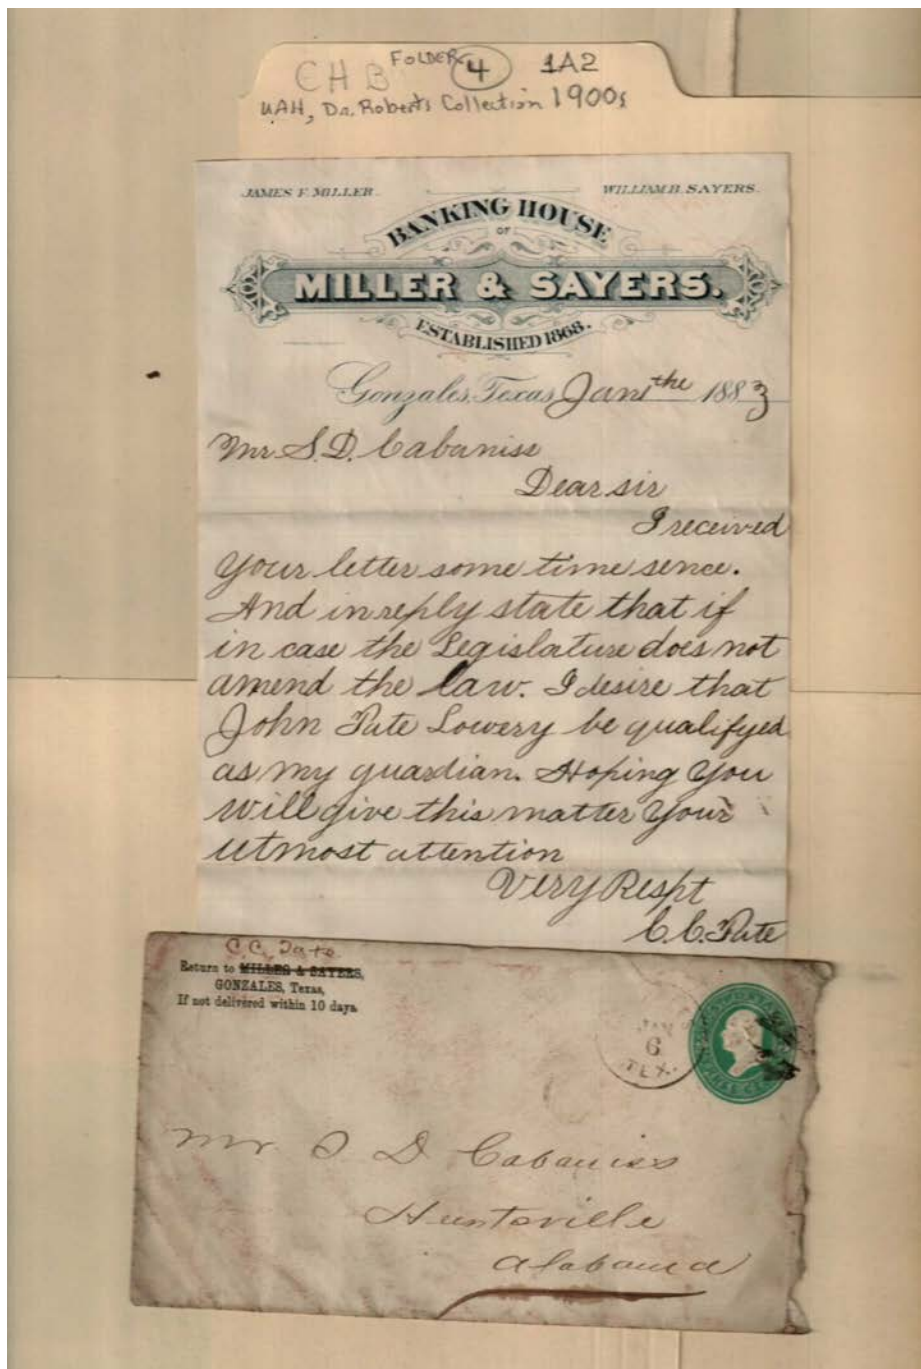 CHB FOLDER 4 1A2
UAH, Dr. Roberts Collection 1900s
JAMES F. MILLER. WILLIAM B. SAYERS.
BANKING HOUSE
OF
MILLER & SAYERS.
ESTABLISHED 1868.
Gonzales, Texas, Jan 1the 1883
Mr S. D. Cabaniss
Dear sir
I received
Your letter some time sence.
And in reply state that if
in case the Legislature does not
amend the law. I desire that
John Pate Lowery be qualifyed
as my guardian. Hoping You
will give this matter Your
utmost attention
Very Respt
C. C. Pate
C. C. Pate
Return to MILLER & SAYERS,
GONZALES, Texas,
If not delivered within 10 days.
JAN
6
TEX.
Mr S D Cabaniss
Huntsville
Alabama